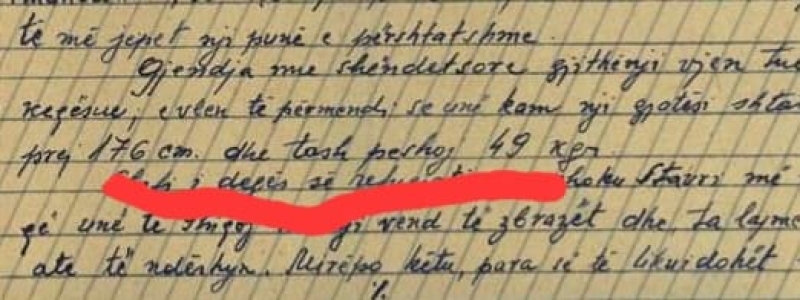 të më jepet nji punë e përshtatshme.
Gjendja me shëndetsore gjithënji vjen tue
keqësue; evlen të përmendi se unë kam nji gjatësi shta
prej 176 cm. dhe tash peshoj 49 kgr
i degës së Stavri më
që unë të vend të zbrazët dhe ta lajme
ate të ndërhyn. Mirëpo këtu, para së të likuidohët